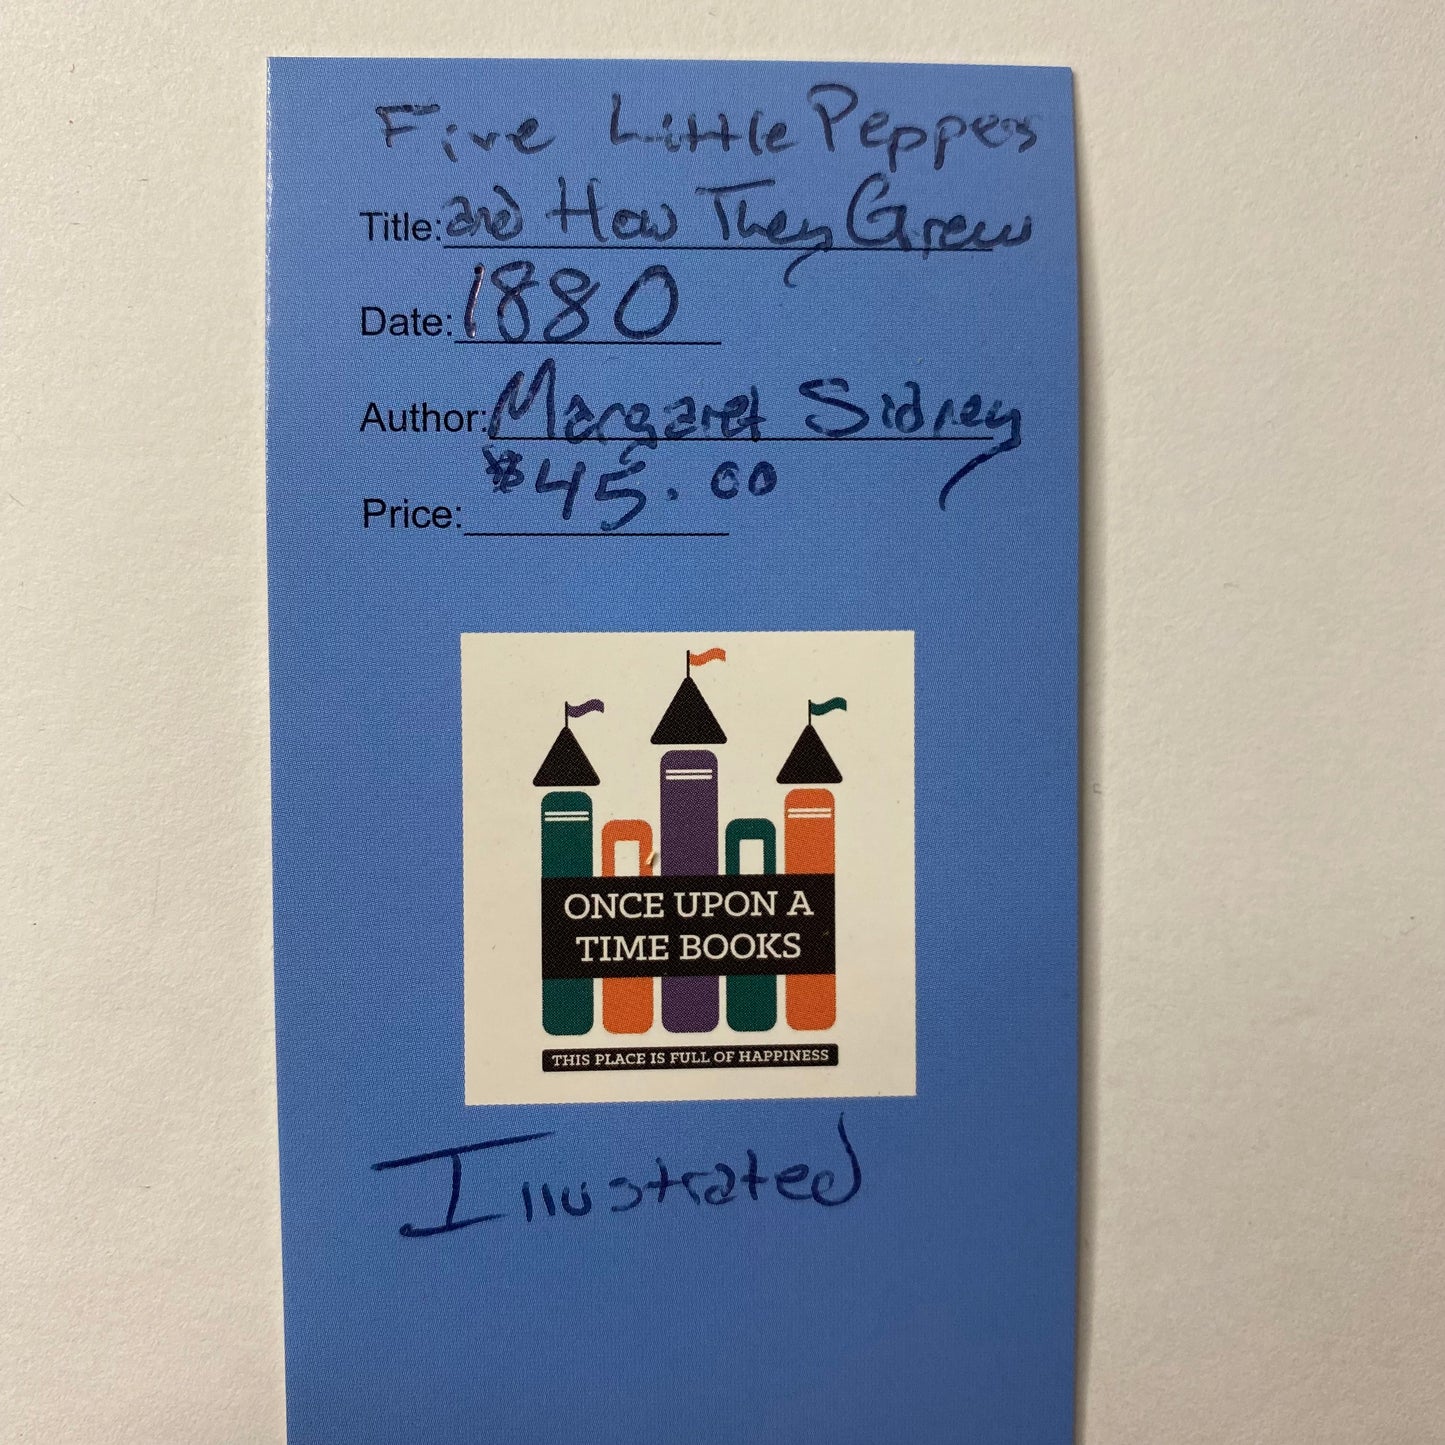 Five Little Peppers
Title: and How They Grew
Date: 1880
Author: Margaret Sidney
Price: $45.00
ONCE UPON A
TIME BOOKS
THIS PLACE IS FULL OF HAPPINESS
Illustrated